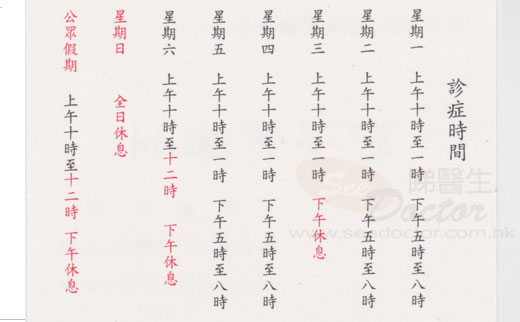 診症時間
星期一 上午十時至一時 下午五時至八時
星期二 上午十時至一時 下午五時至八時
星期三 上午十時至一時 下午休息
星期四 上午十時至一時 下午五時至八時
星期五 上午十時至一時 下午五時至八時
星期六 上午十時至十二時 下午休息
星期日 全日休息
公眾假期 上午十時至十二時 下午休息
See 睇醫生
Doctor
www.seedoctor.com.hk